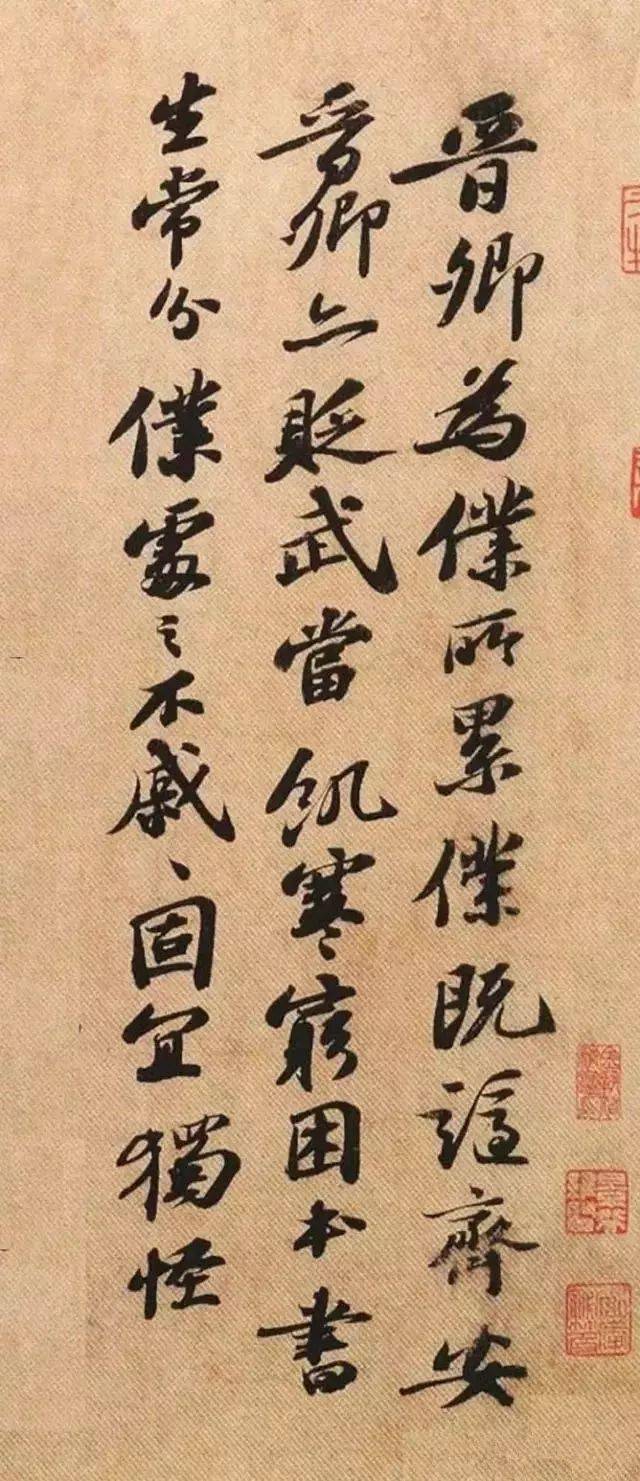 晉卿為僕所累僕既謫齊安
晉卿亦貶武當飢寒窮困本書
生常分僕處之不戚戚固宜獨怪